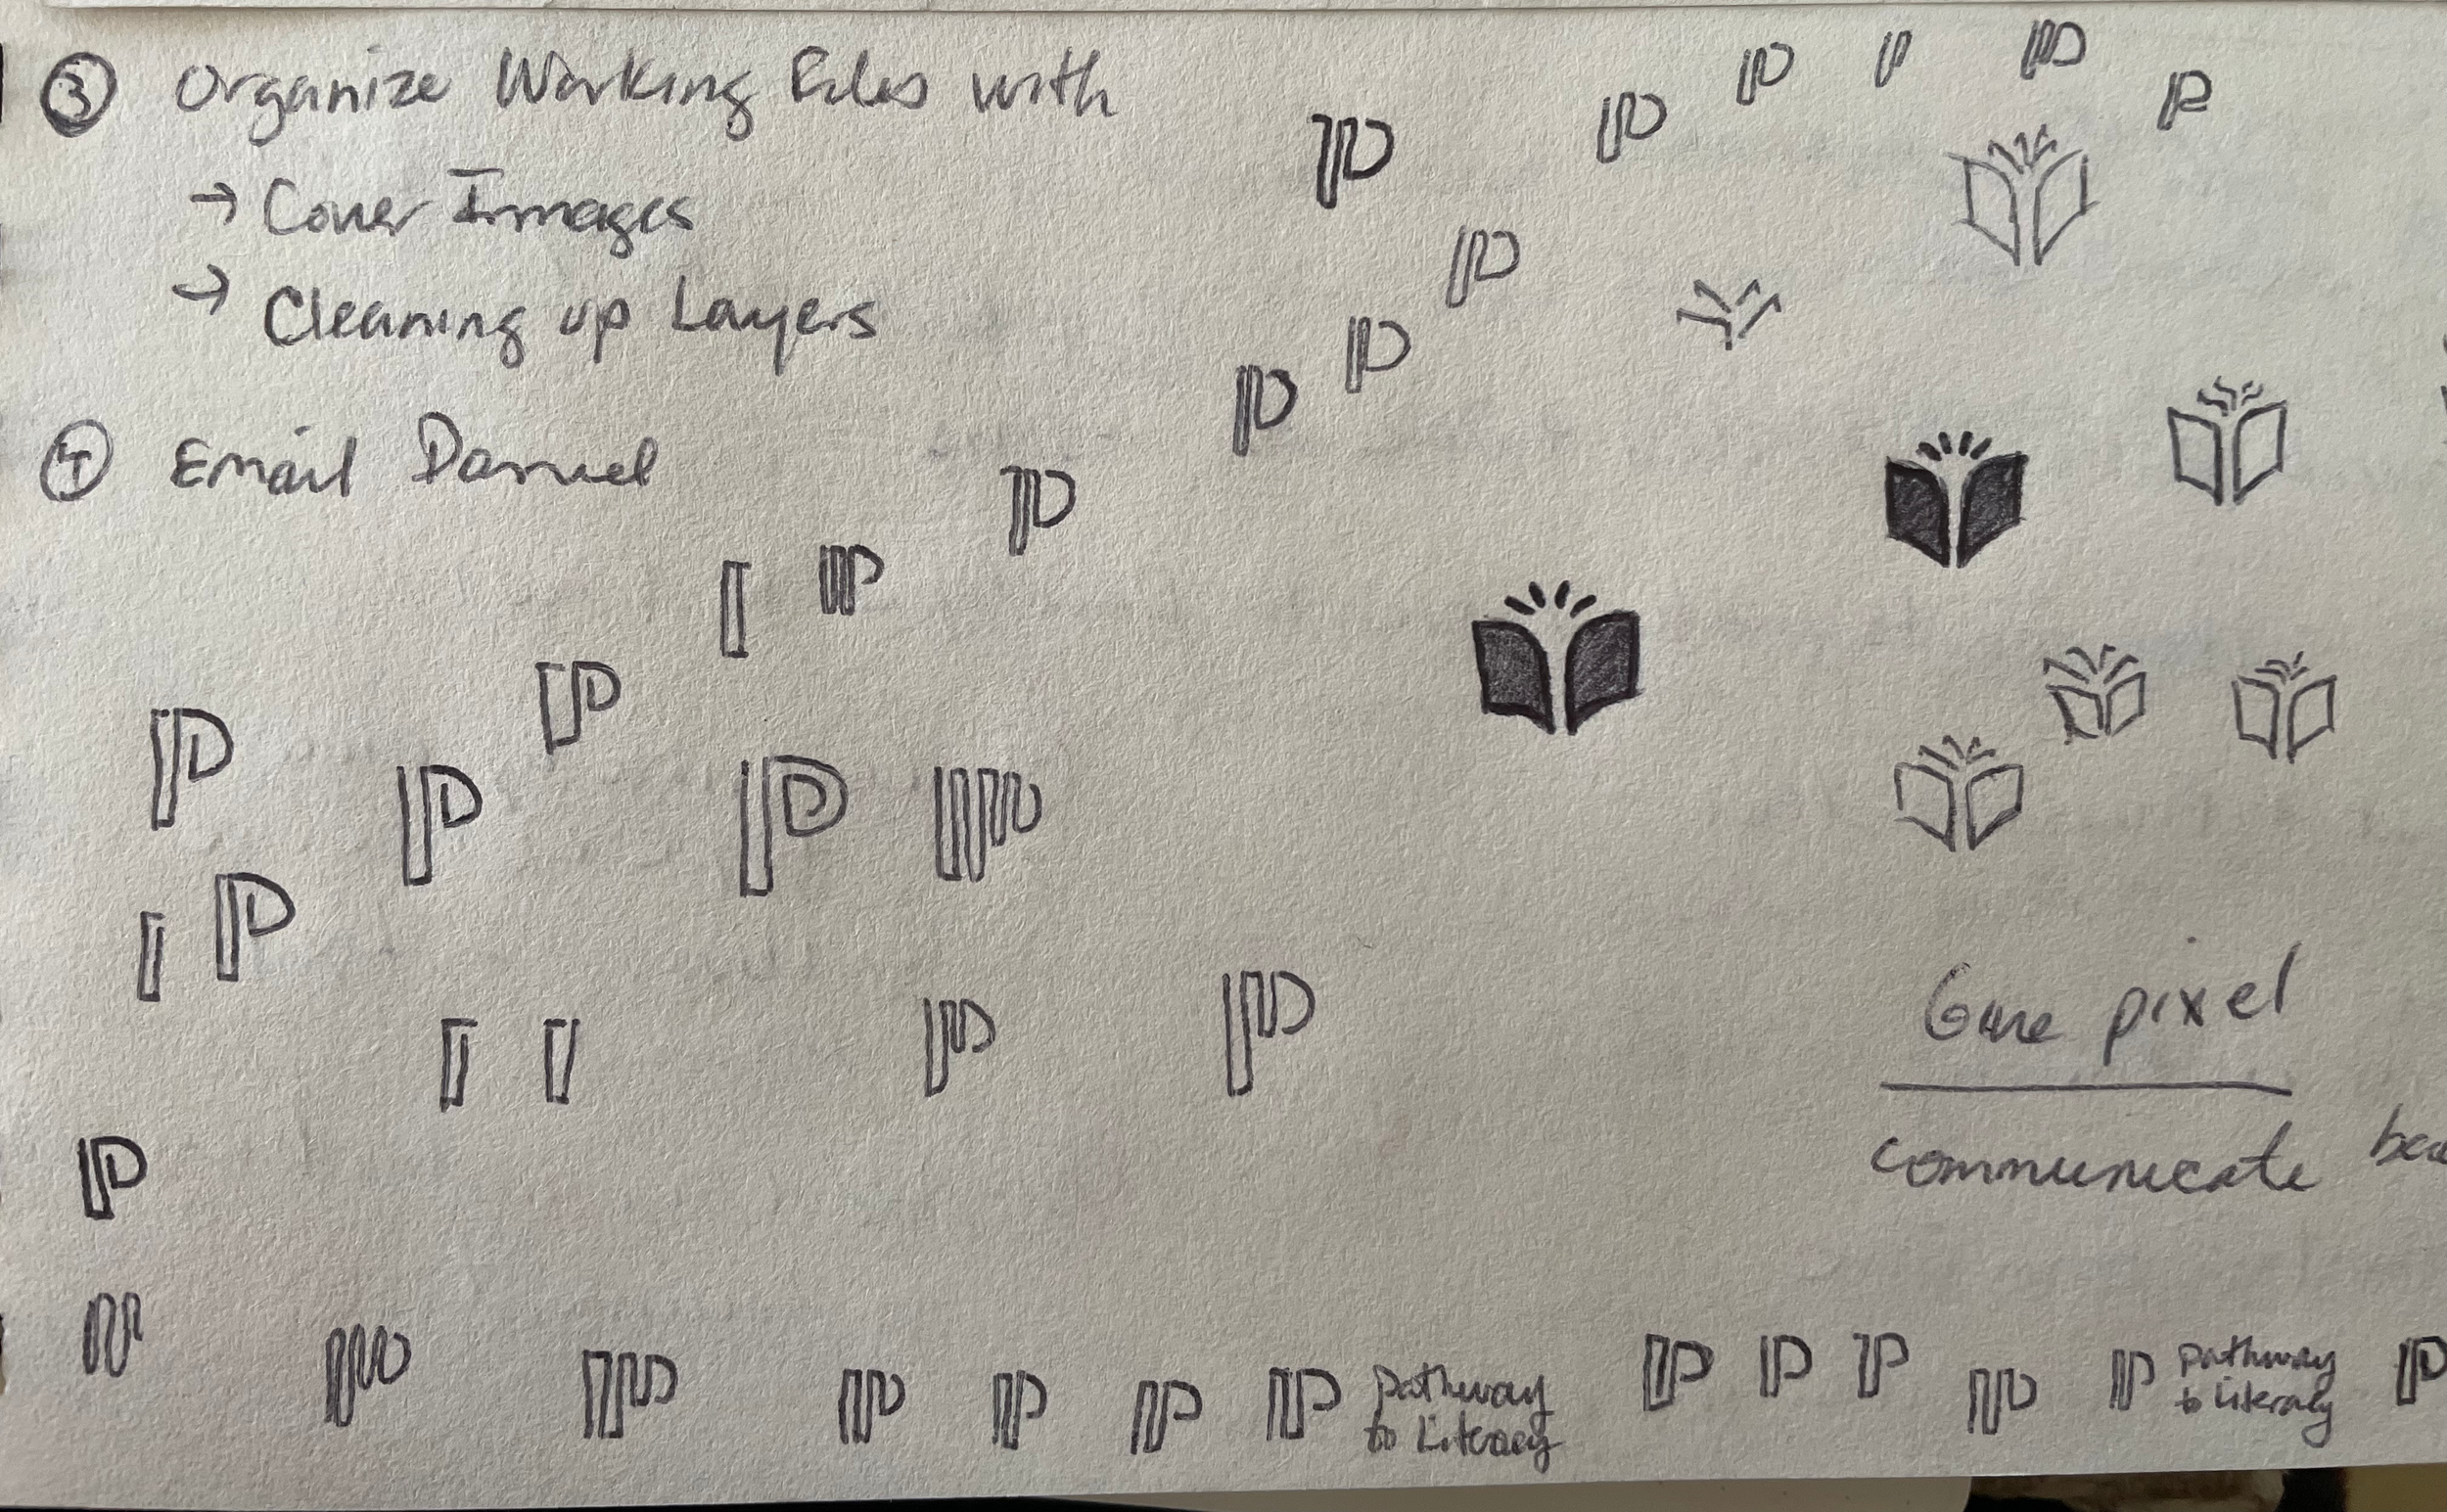 3 Organize Working Files with
→ Cover Images
→ Cleaning up Layers
4 Email Daniel
pixel
communicate
pathway
to Literacy
pathway
to Literacy